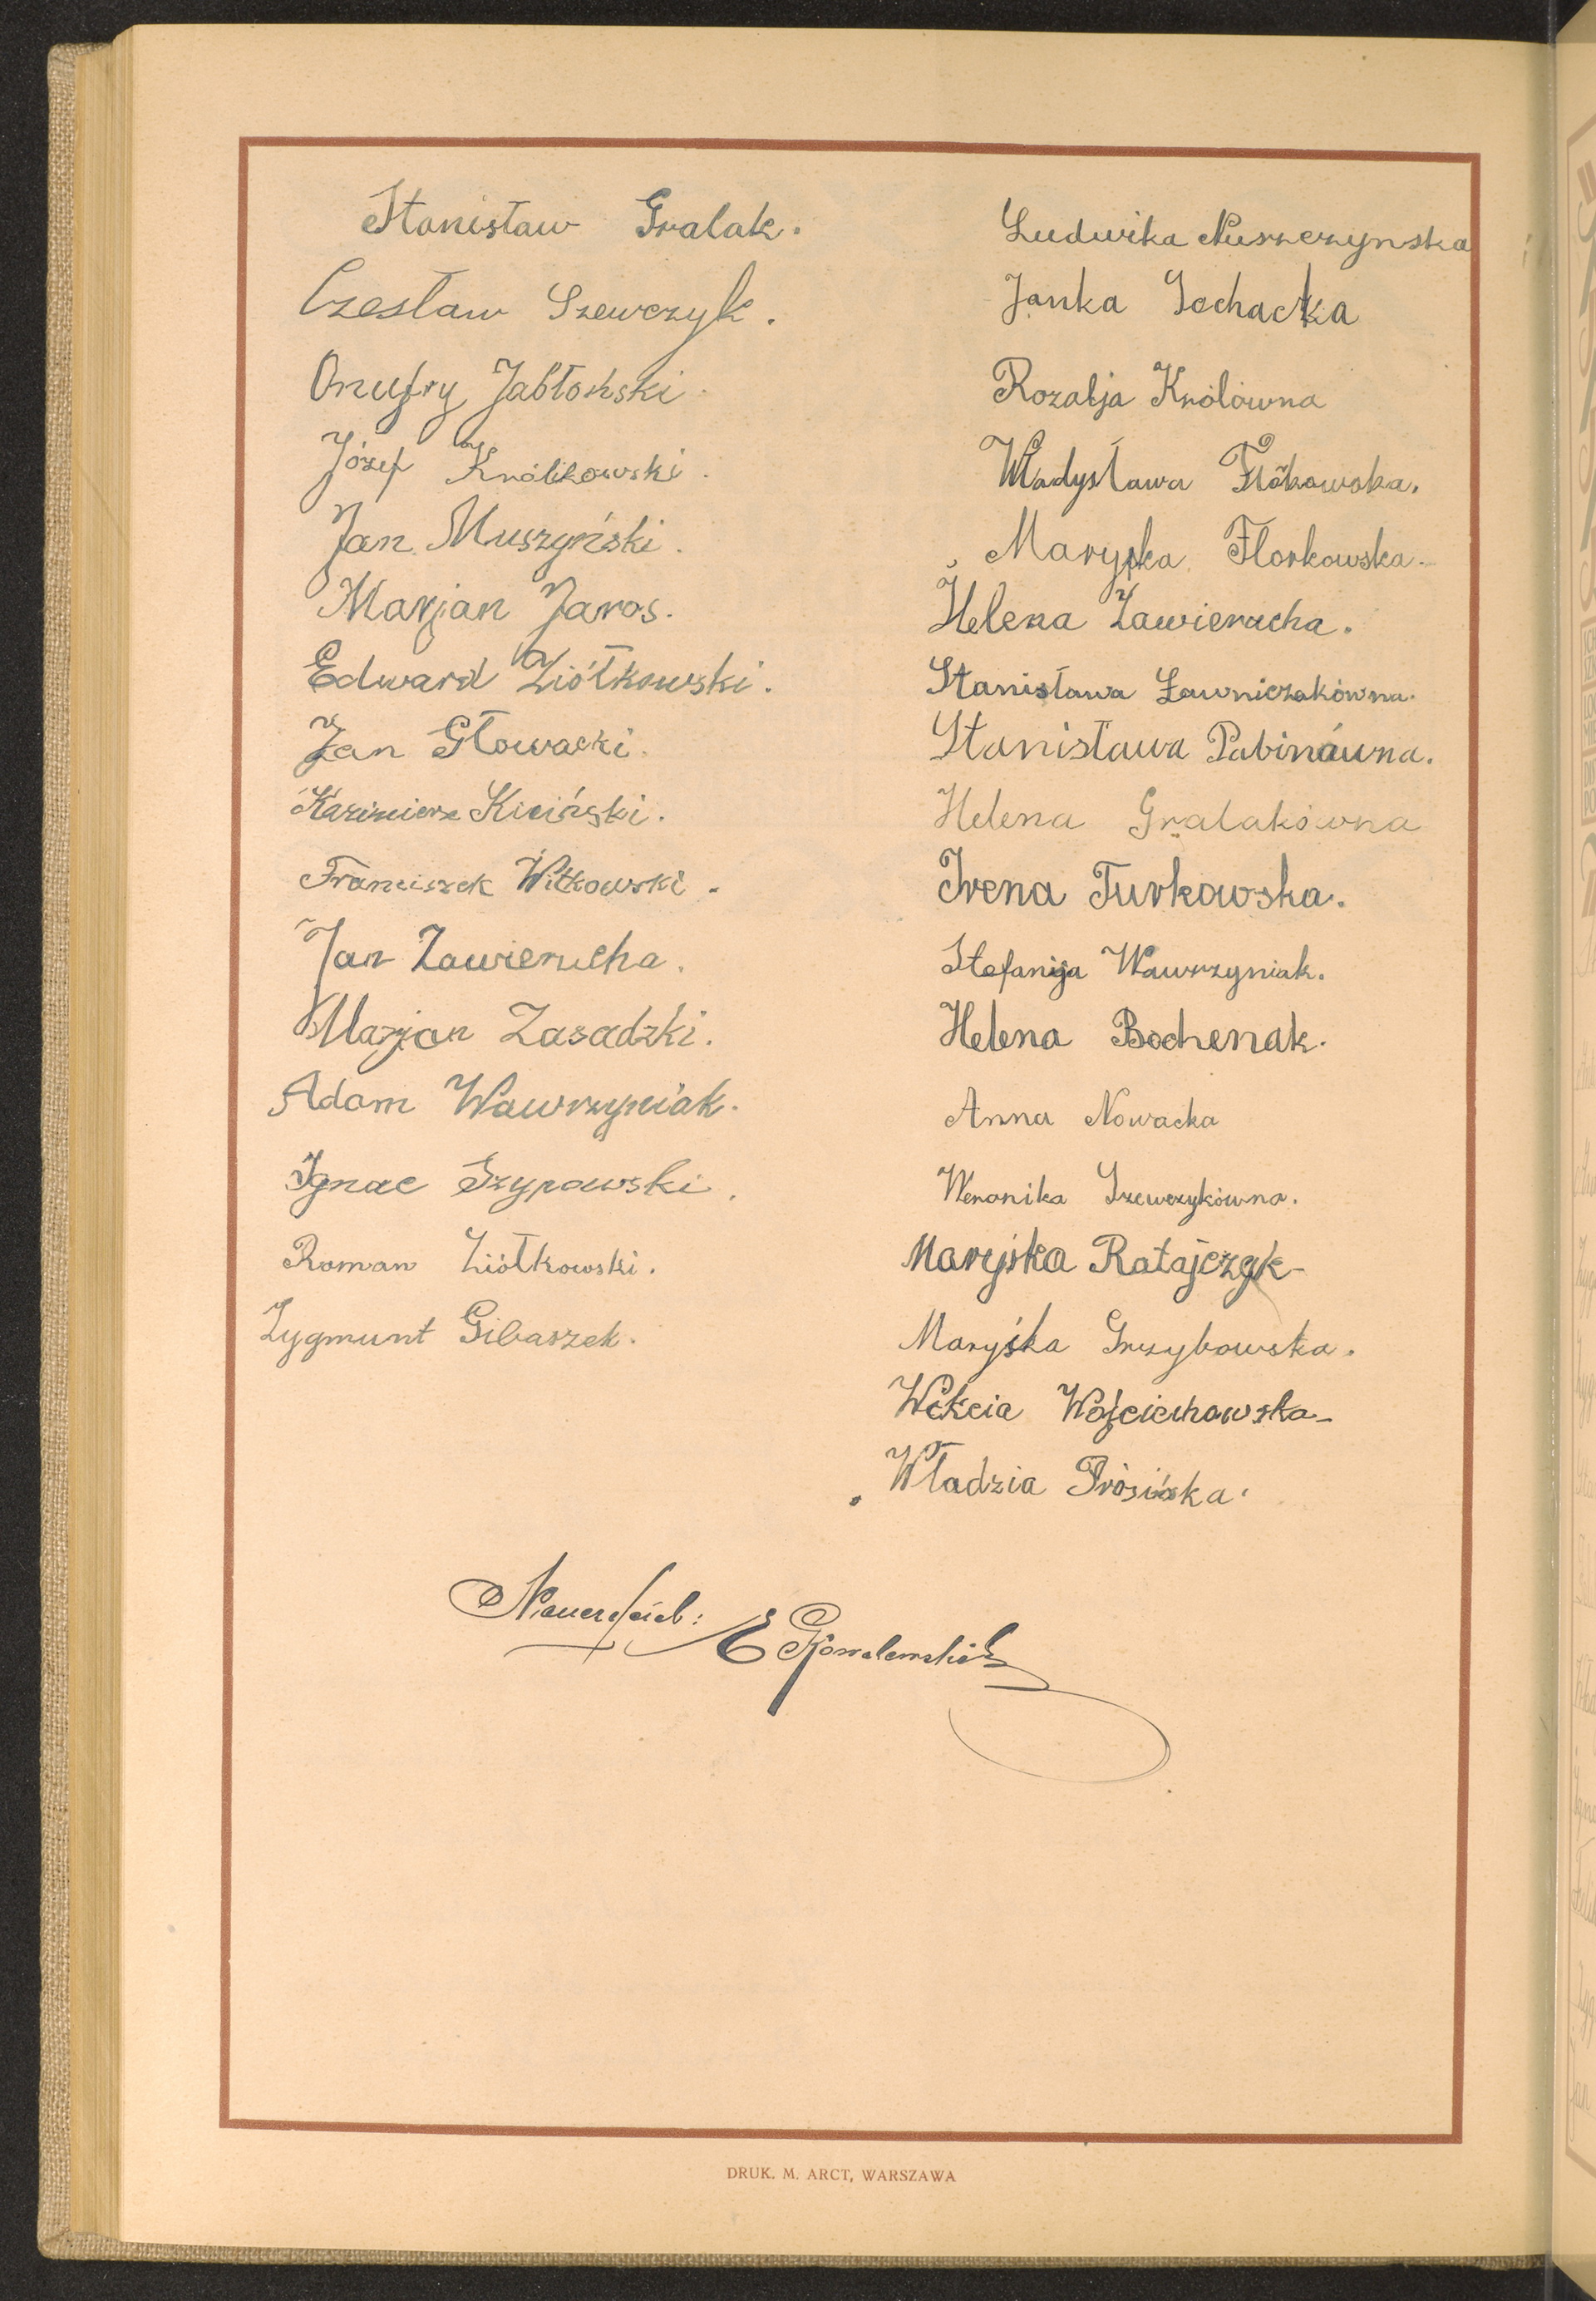 Stanisław Gralak.
Czesław Szewczyk.
Onufry Jabłoński
Józef Królikowski.
Jan Muszyński.
Marjan Jaros.
Edward Ziółkowski.
Jan Głowacki.
Kazimierz Kiciński.
Franciszek Witkowski.
Jan Zawierucha.
Marjan Zasadzki.
Adam Wawrzyniak.
Ignac Szypowski.
Roman Ziółkowski.
Zygmunt Gibaszek.
Ludwika
Janka Sochacka
Rozalja Królówna
Władysława
Maryśka Florkowska.
Helena Zawierucha.
Stanisława Ławniczakówna.
Stanisława
Helena Gralakówna
Irena Turkowska.
Stefanija Wawrzyniak.
Helena Bochenak.
Anna Nowacka
Weronika Szewczykówna.
Maryśka Ratajczyk
Maryśka Grzybowska.
Wojciechowska
Władzia Prósińska.
E Kowalewski
DRUK. M. ARCT, WARSZAWA